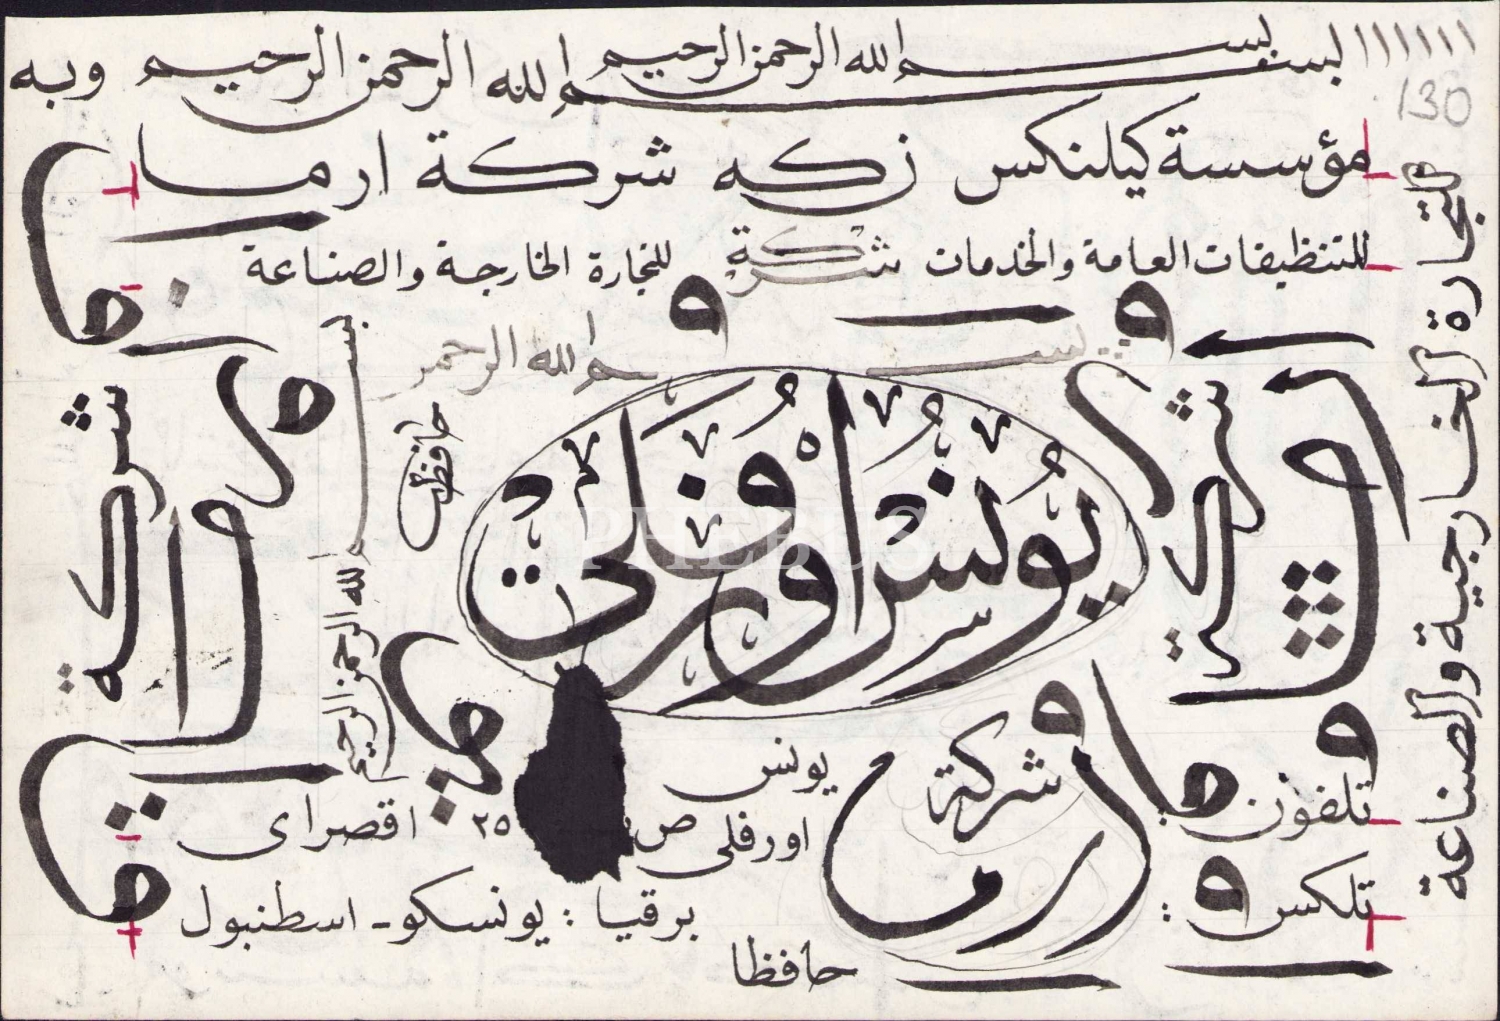 بسم الله الرحمن الرحيم
بسم الله الرحمن الرحيم وبه
130
مؤسسة كيلنكس زكه شركة ارما
للتنظيفات العامة والخدمات شركة للتجارة الخارجة والصناعة
بسم الله الرحمن
للتجارة الخارجية والصناعة
شركة
شركة
بسم الله الرحمن الرحيم
حافظ
يونس اورفلي
PHEBUS
و
و
شركة ارما
يونس
اورفلى ص ٢٥ اقصراى
تلفون
تلكس :
برقيا : يونسكو - اسطنبول
حافظا